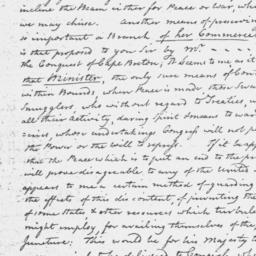 incline the Beam either for Peace or War, wh
we may chuse. Another means of preservin
so important a Branch of her Commerce
is that proposed to you Sir by Mr. - - - -
the Conquest of Cape Breton. It seems to me as it
that Minister, the only sure means of Con
within Bounds, when Peace is made those Swa
Smugglers, who without regard to Treaties, w
all their activity, daring Spirit & means to war
whose undertakings Congress will not
the Power or the will to repress. If it happ
that the Peace which is to put an end to the pr
will prove disagreable to any of the United
appears to me a certain method of guarding
the effects of this discontent, of preventing the
of some States & other resources which turbul
might employ, for availing themselves of the
juncture; This would be for his Majesty to